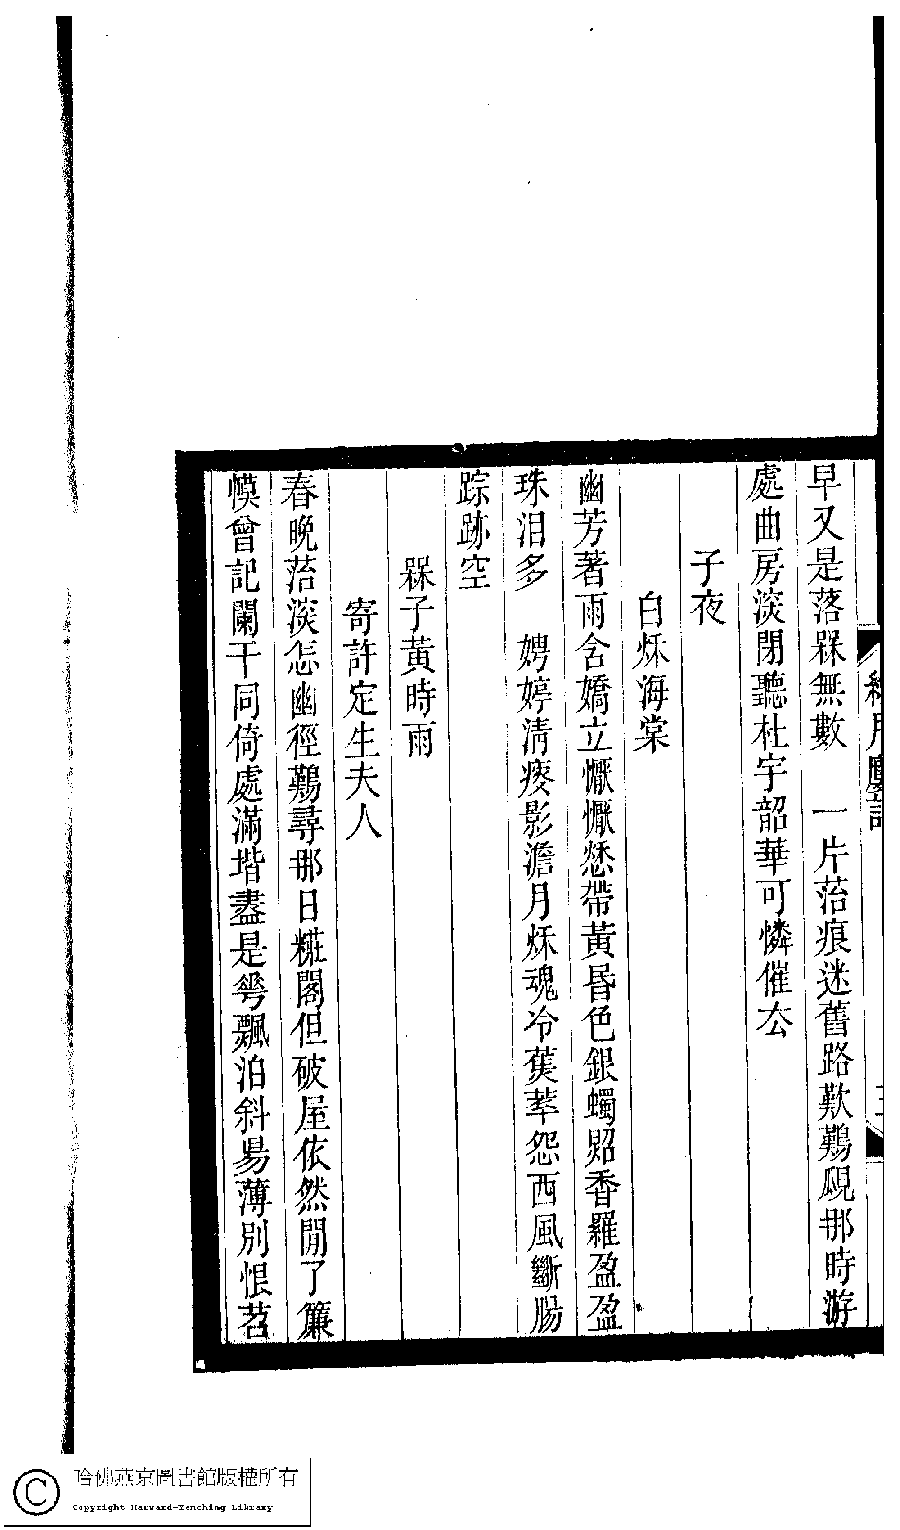 早又是落槑無數　一片菭痕迷舊路歎𪄿覛那時游
處曲房㴱閉聽杜宇韶華可憐催厺
子夜
白秌海棠
幽芳著雨含嬌立懨懨愁帶黃昏色銀蠋照香羅盈盈
珠泪多　娉婷淸瘦影澹月秌魂冷蕉萃怨西風斷腸
踪跡空
槑子黃時雨
寄許定生夫人
春晚菭㴱怎幽徑𪄿尋那日糚閣但破屋依然閒了簾
幙曾記闌干同倚處滿堦盡是𠌶飄泊斜昜薄別恨苕
哈佛燕京圖書館版權所有
Copyright Harvard-Yenching Library